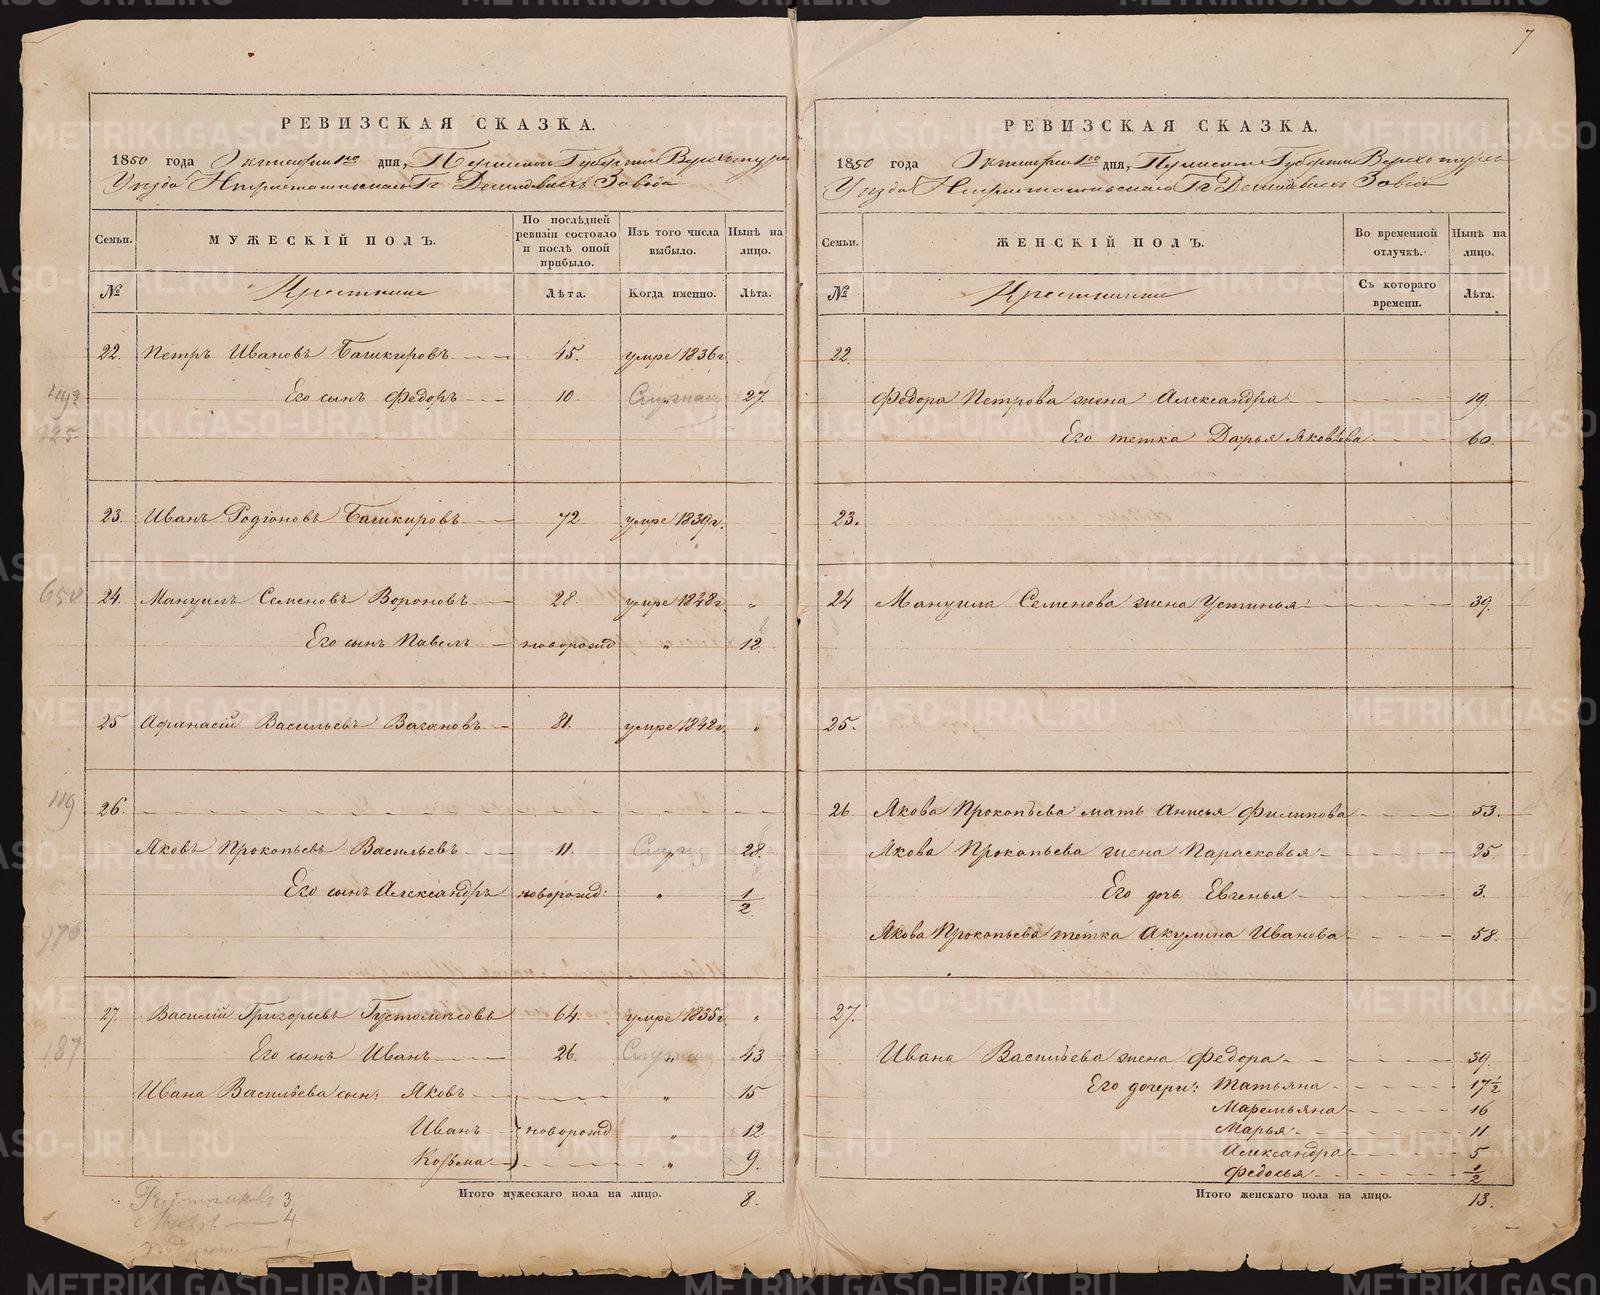 7
РЕВИЗСКАЯ СКАЗКА.
1850 года Октября 1го дня, Пермской Губернии Верхотурс
Уезда Гг Демидовыхъ Завода
Семьи. МУЖЕСКІЙ ПОЛЪ. По послѣдней ревизіи состояло и послѣ оной прибыло. Изъ того числа выбыло. Нынѣ на лицо.
№ Крестьяне Лѣта. Когда именно. Лѣта.
22. Петръ Ивановъ Башкировъ 45. умре 1836г.
492 Его сынъ Федоръ 10. " 27.
23. Иванъ Родіоновъ Башкировъ 72 умре 1839г.
650 24. Мануилъ Семеновъ Вороновъ 28. умре 1848г. "
Его сынъ Павелъ новорожд " 12.
25 Афанасій Васильевъ Вагановъ 81. умре 1842г. "
119 26.
Яковъ Прокопьевъ Васильевъ 11. " 28.
Его сынъ Александръ новорожд: " 1/2
976
27. Василій Григорьевъ Густомѣсовъ 64. умре 1835г. "
187 Его сынъ Иванъ 26. " 43
Ивана Васильева сын: Яковъ " 15
Иванъ новорожд " 12
Козьма " 9.
Итого мужескаго пола на лицо. 8.
3
4
1
РЕВИЗСКАЯ СКАЗКА.
1850 года Октября 1го дня, Пермской Губерніи Верхотурс
Уезда Гг Демидовыхъ Завода
Семьи. ЖЕНСКІЙ ПОЛЪ. Во временной отлучкѣ. Нынѣ на лицо.
№ Крестьянки Съ котораго времени. Лѣта.
22.
Федора Петрова жена Александра 19.
Его тетка Дарья Яковлева 60.
23.
24 Мануила Семенова жена Устинья 39.
25.
26 Якова Прокопьева мать Анисья Филипова 53.
Якова Прокопьева жена Парасковья 25
Его дочь Евгенья 3.
Якова Прокопьева тетка Акулина Иванова 58.
27.
Ивана Васильева жена Федора 39.
Его дочери: Татьяна 17 1/2
Маремьяна 16
Марья 11
Александра 5
Федосья 1/2
Итого женскаго пола на лицо. 13.
METRIKI.GASO-URAL.RU